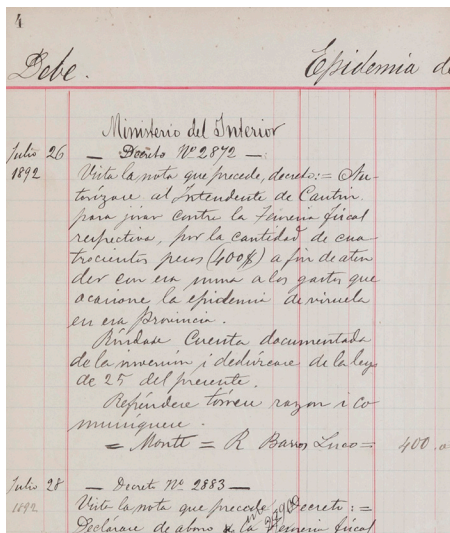 4
Debe.
Epidemia de
Ministerio del Interior
Julio 26 — Decreto Nº 2872 —
1892 Vista la nota que precede, decreto: = Au-
torízase al Intendente de Cautin
para jirar contra la Tesorería fiscal
respectiva, por la cantidad de cua-
trocientos pesos (400$) a fin de aten
der con esa suma a los gastos que
ocasione la epidemia de viruela
en esa Provincia.
Ríndase Cuenta documentada
de la inversión i dedúzcase de la ley
de 25 del presente.
Refréndese tómese razon i co
muníquese.
= Montt = R Barros Luco = 400
Julio 28 — Decreto Nº 2883 —
1892 Vista la nota que precede Decreto: =
Declárase de abono a la Tesorería fiscal